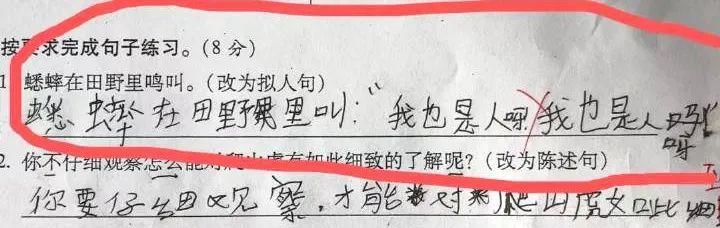 按要求完成句子练习。(8 分)
1 蟋蟀在田野里鸣叫。(改为拟人句)
蟋蟀在田野里叫:“我也是人呀我也是人呀!
2. 你不仔细观察怎么能对爬山虎有如此细致的了解呢? (改为陈述句)
你要仔细观察,才能对爬山虎如此细